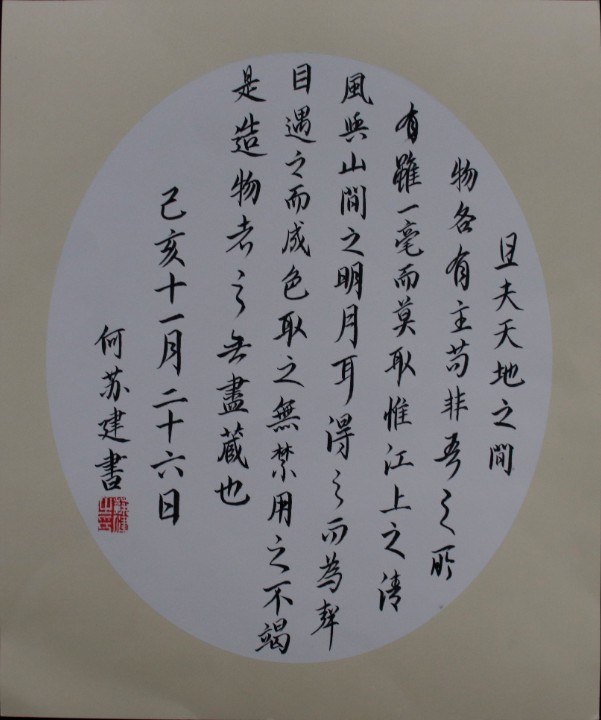 且夫天地之間
物各有主苟非吾之所
有雖一毫而莫取惟江上之清
風與山間之明月耳得之而為聲
目遇之而成色取之無禁用之不竭
是造物者之无盡藏也
己亥十一月二十六日
何苏建書